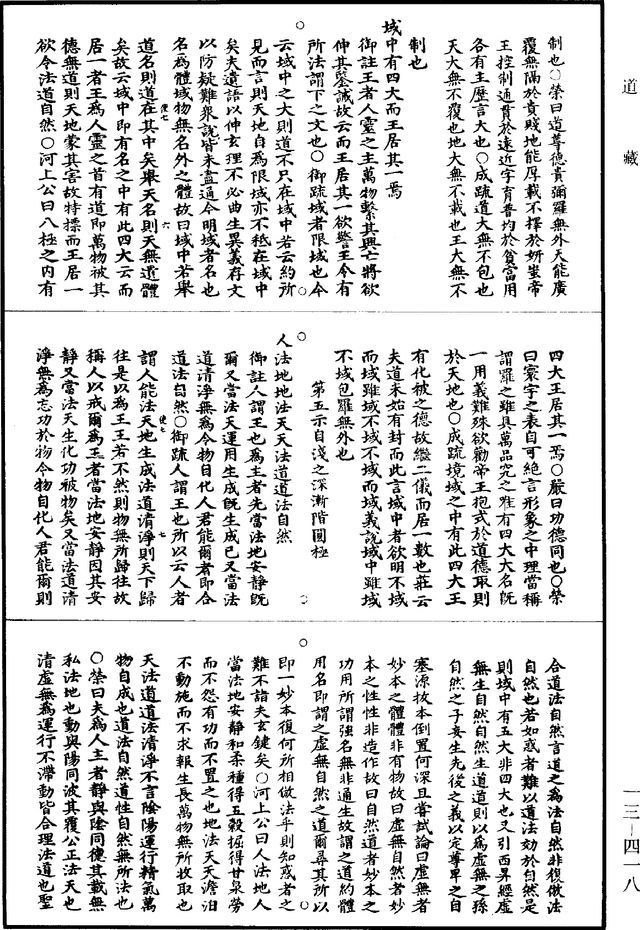 道藏
制也○榮曰道尊德貴彌羅無外天能廣
覆無隔於貴賤地能厚載不擇於妍蚩帝
王控制通貫於遠近字育普均於貧富用
各有主歷言大也○成疏道大無不包也
天大無不覆也地大無不載也王大無不
制也
域中有四大而王居其一焉
御註王者人靈之主萬物繫其興亡將欲
伸其鑒誡故云而王居其一欲警王令有
所法謂下之文也○御疏域者限域也今
云域中之大則道不只在域中若云約所
見而言則天地自為限域亦不秖在域中
矣夫遺語以伸玄理不必曲生異義存文
以防疑難衆說皆未盡通今明域者名也
名為體域物無名外之體故曰域中若舉
道名則道在其中矣舉天名則天無遺體
矣故云域中即有名之中有此四大云而
居一者王為人靈之首有道即萬物被其
德無道則天地蒙其害故特標而王居一
欲令法道自然○河上公曰八極之內有
四大王居其一焉○嚴曰功德同也○榮
曰寰宇之表自可絕言形象之中理當稱
謂羅之雖具萬品究之唯有四大大名既
一用義難殊欲勸帝王抱式於道德取則
於天地也○成疏境域之中有此四大王
有化被之德故繼二儀而居一數也莊云
夫道未始有封而此言域中者欲明不域
而域雖域不域不域而域義說域中雖域
不域包羅無外也
第五示自淺之深漸階圓極
人法地地法天天法道道法自然
御註人謂王也為王者先當法地安靜既
爾又當法天運用生成既生成已又當法
道清淨無為令物自化人君能爾者即合
道法自然○御疏人謂王也所以云人者
謂人能法天地生成法道清淨則天下歸
往是以為王王若不然則物無所歸往故
稱人以戒爾為王者當法地安靜因其安
靜又當法天生化功被物矣又當法道清
淨無為忘功於物令物自化人君能爾則
合道法自然言道之為法自然非復倣法
自然也若如惑者難以道法効於自然是
則域中有五大非四大也又引西昇經虛
無生自然自然生道道則以為虛無之孫
自然之子妄生先後之義以定尊卑之自
塞源拔本倒置何深且嘗試論曰虛無者
妙本之體體非有物故曰虛無自然者妙
本之性性非造作故曰自然道者妙本之
功用所謂強名無非通生故謂之道約體
用名即謂之虛無自然之道爾尋其所以
即一妙本復何所相倣法乎則知惑者之
難不諧夫玄鍵矣○河上公曰人法地人
當法地安靜和柔種得五穀掘得甘泉勞
而不怨有功而不置之也地法天天澹泊
不動施而不求報生長萬物無所收取也
天法道道法清淨不言陰陽運行精氣萬
物自成也道法自然道性自然無所法也
○榮曰夫為人主者靜與陰同德其載無
私法地也動與陽同波其覆公正法天也
清虛無為運行不滯動皆合理法道也聖
一三—四一八